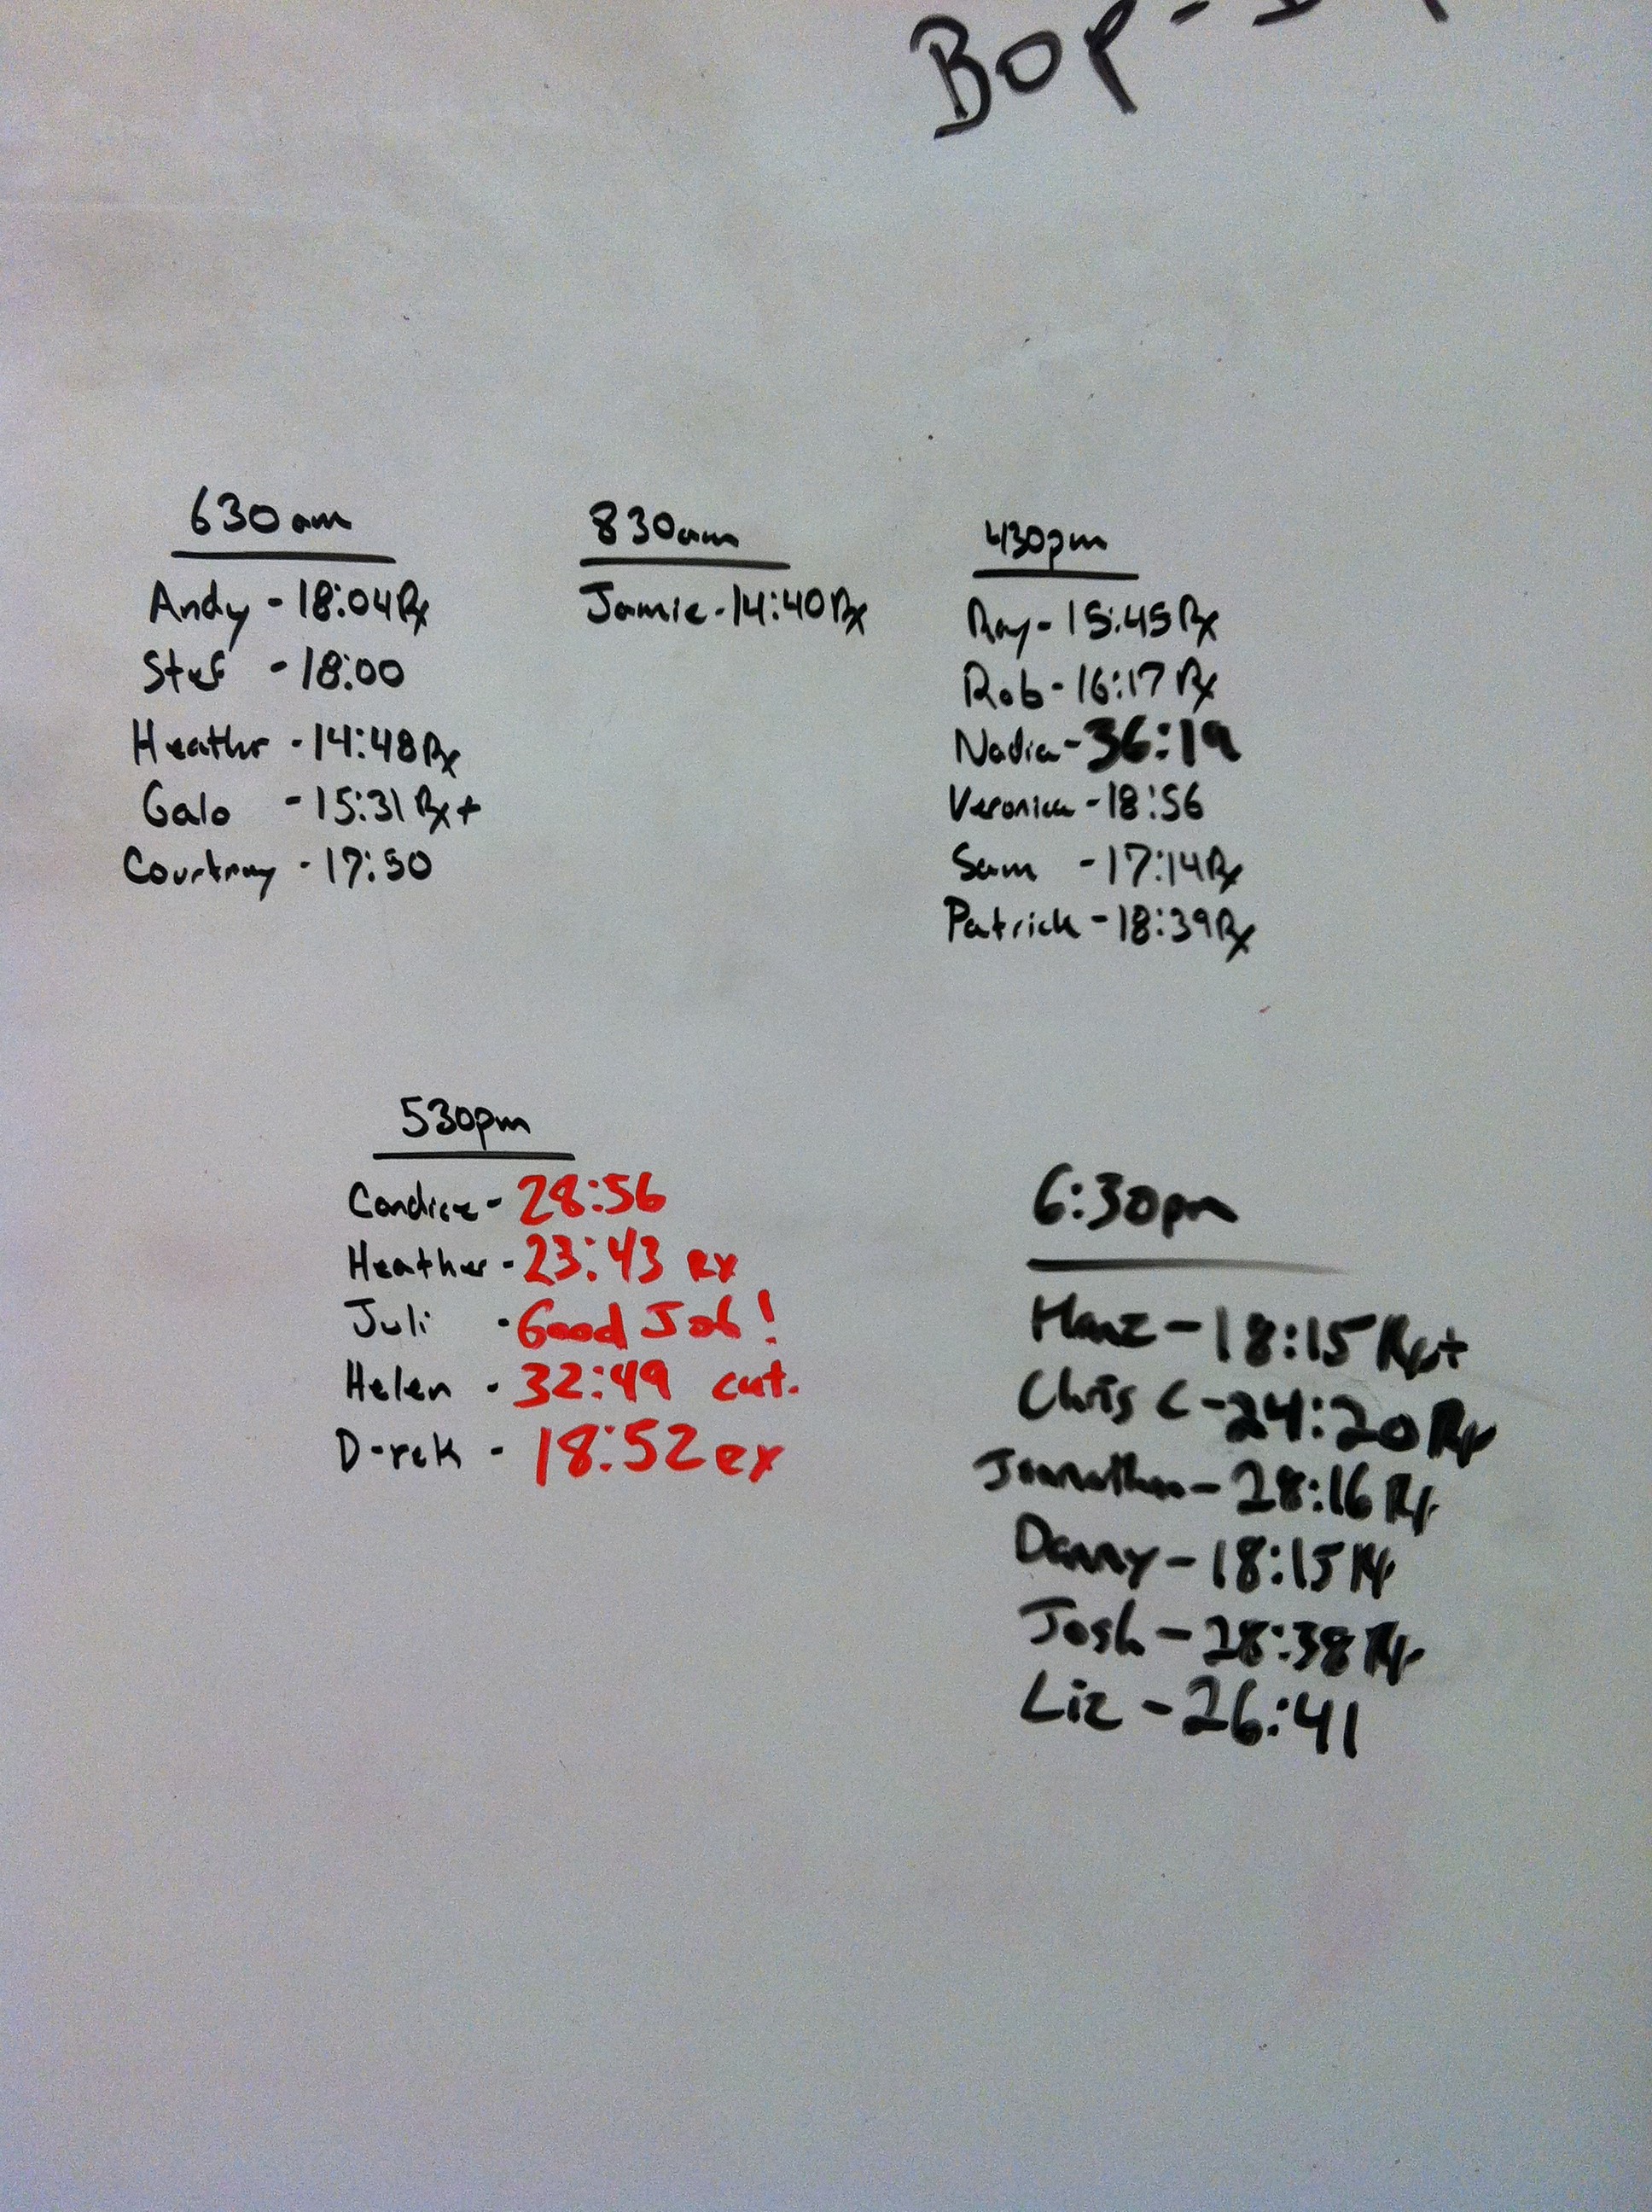 BOP -
630am
Andy - 18:04 Rx
Stef - 18:00
Heathr - 14:48 Rx
Galo - 15:31 Rx+
Courtney - 17:50
830am
Jamie - 14:40 Rx
430pm
Ray - 15:45 Rx
Rob - 16:17 Rx
Nadia - 36:19
Veronica - 18:56
Sam - 17:14 Rx
Patrick - 18:39 Rx
530pm
Candice - 28:56
Heather - 23:43 RX
Juli - Good Job!
Helen - 32:49 cut.
D-rek - 18:52 RX
6:30pm
Hanz - 18:15 Rx+
Chris C - 24:20 Rx
Jonnathan - 28:16 Rx
Danny - 18:15 Rx
Josh - 28:38 Rx
Liz - 26:41